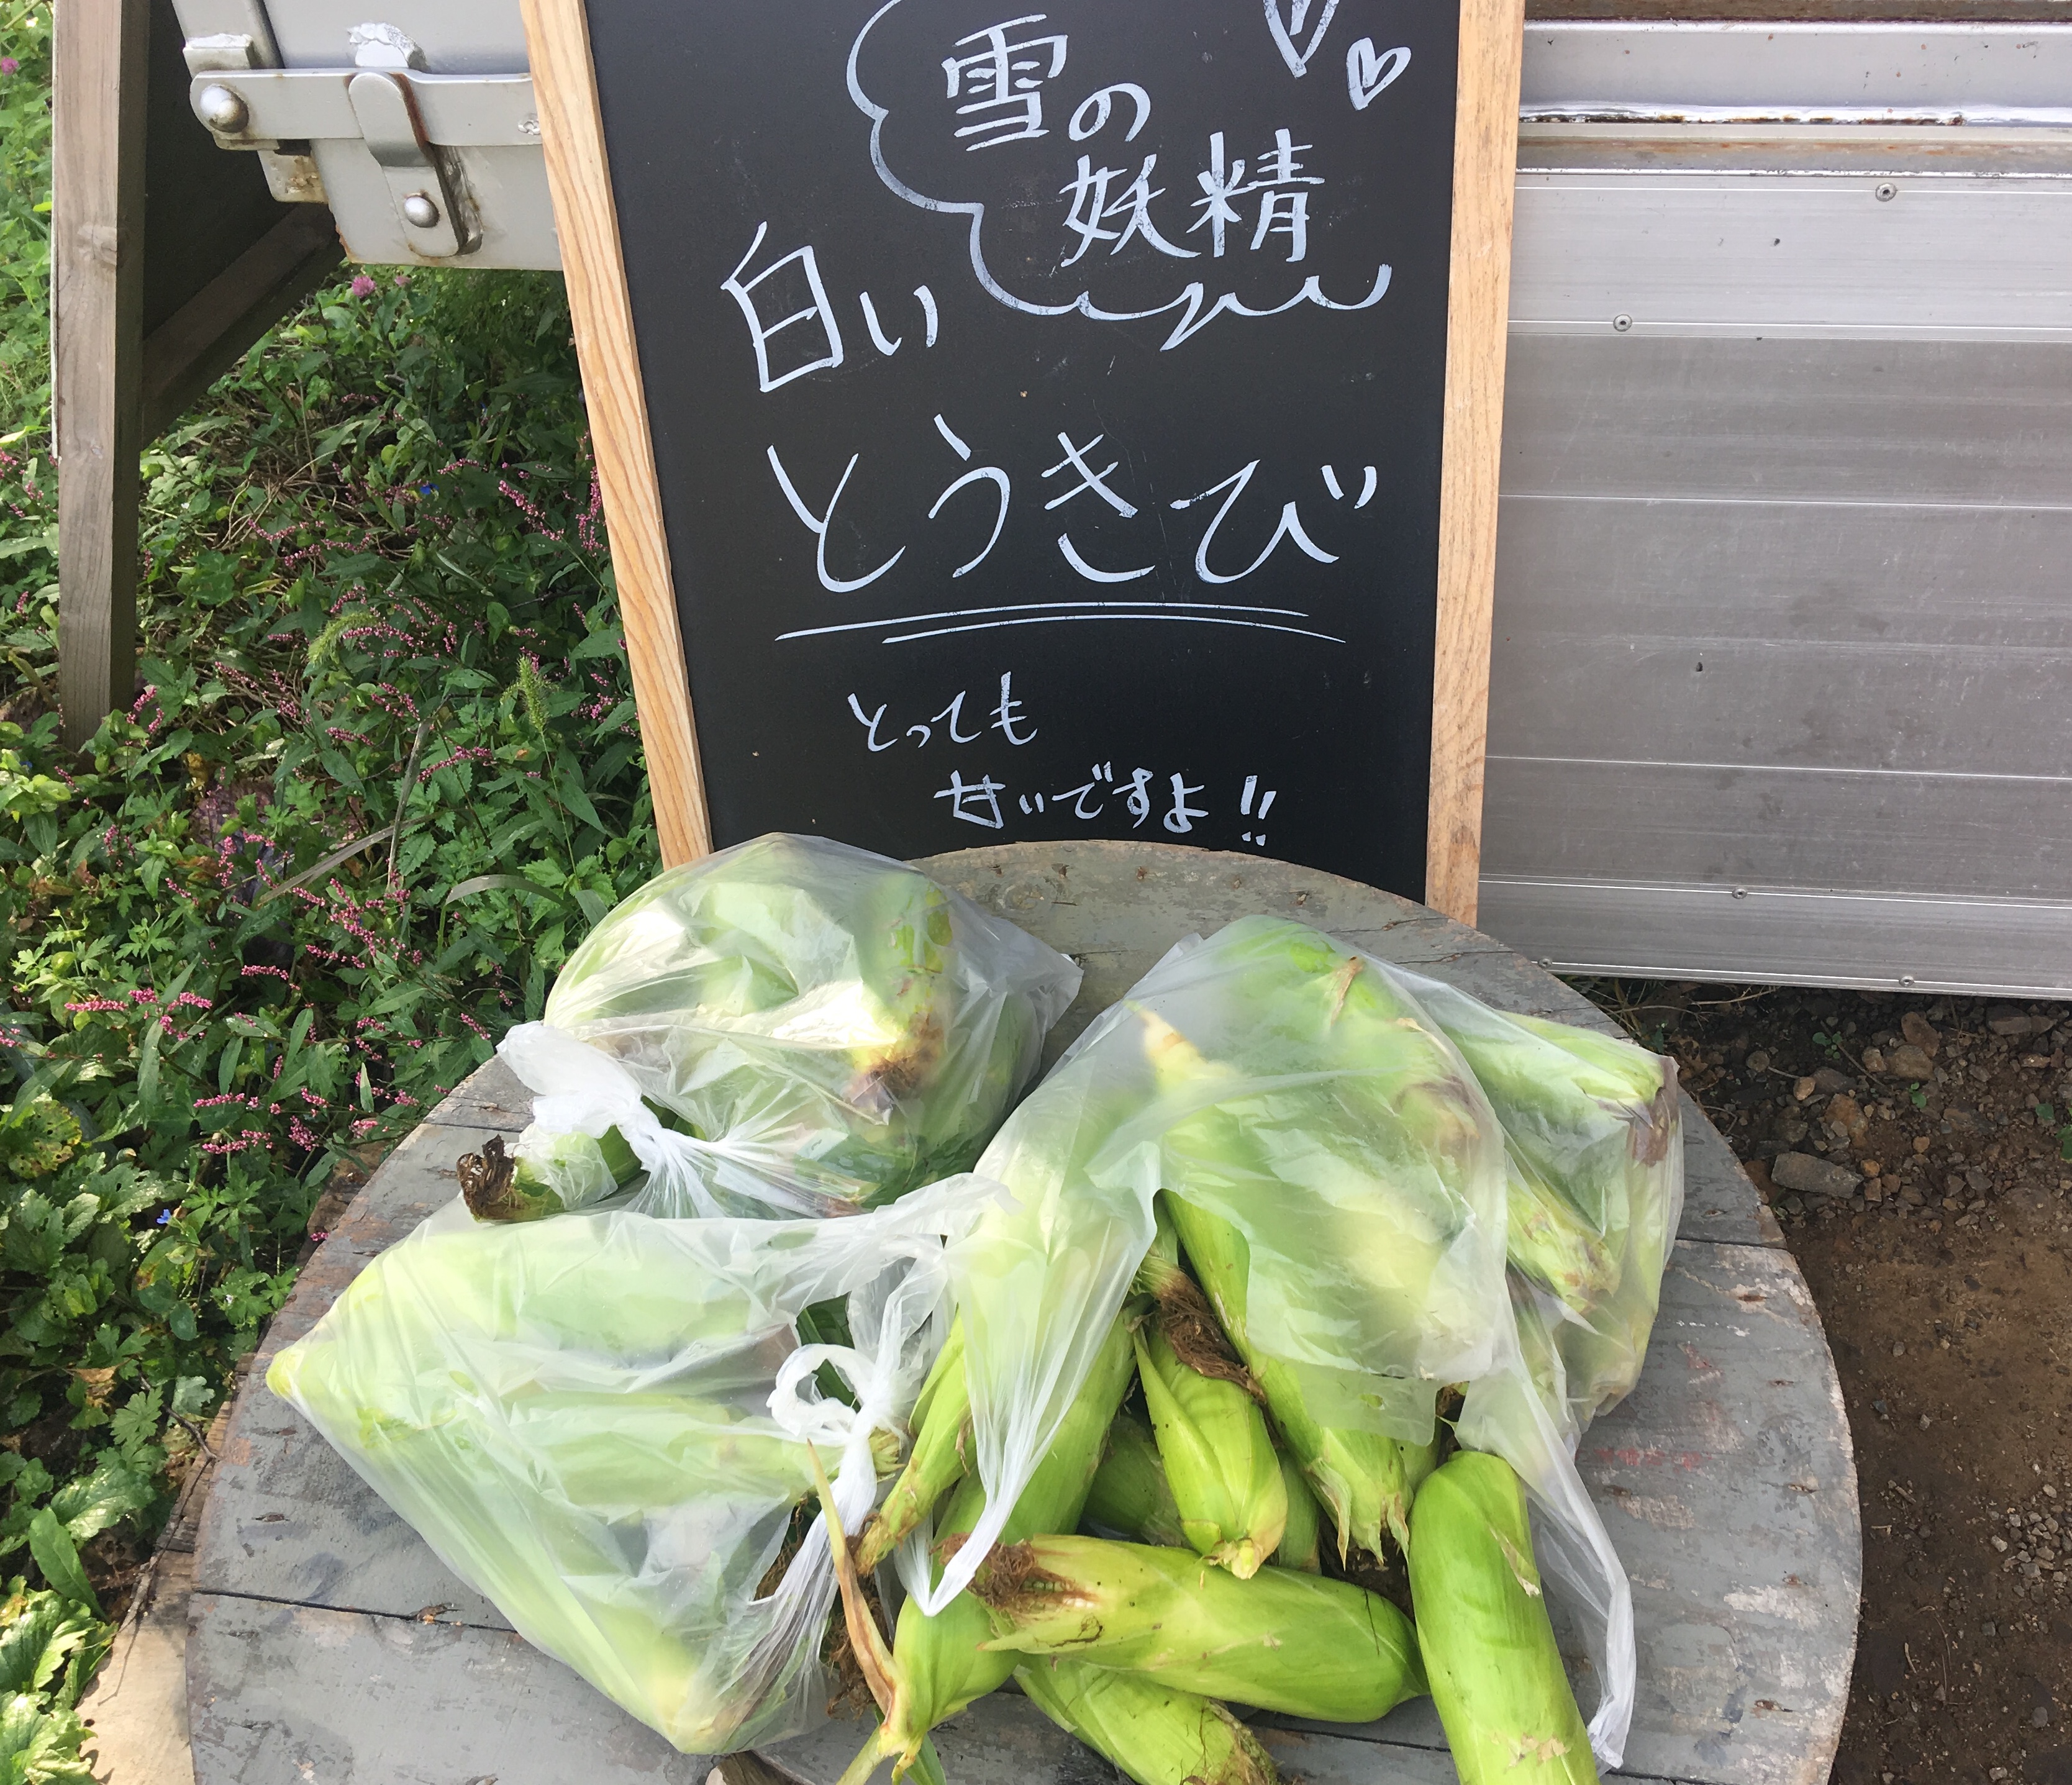 雪の
妖精
白い
とうきび
とっても
甘いですよ!!